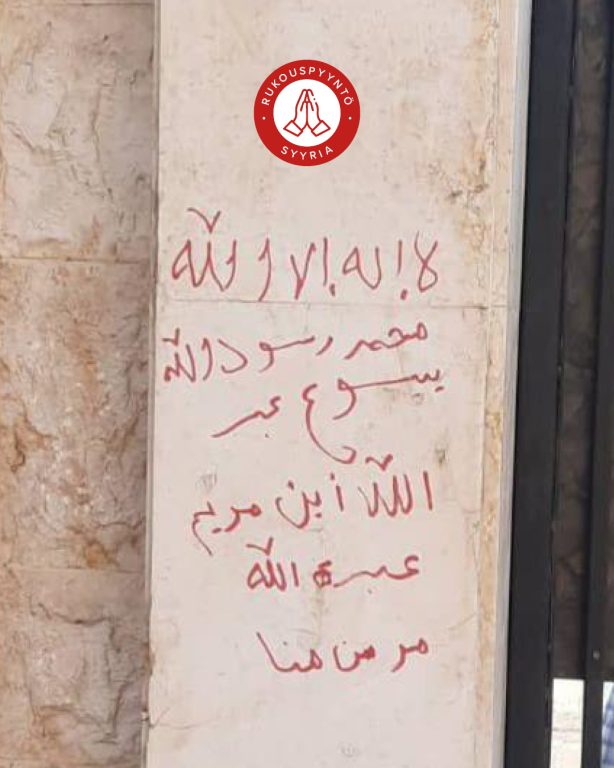 RUKOUSPYYNTÖ
SYYRIA
لا إله إلا الله
محمد رسول الله
يسوع عبد
الله أبن مريم
عبدة الله
مر من هنا